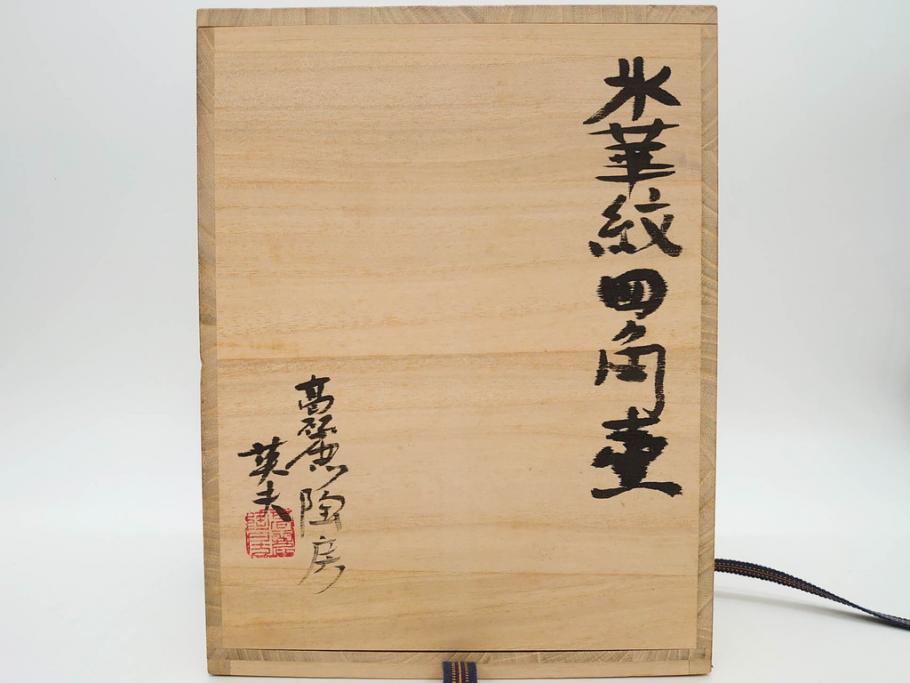 氷華紋四角壷
高麗陶房
英夫